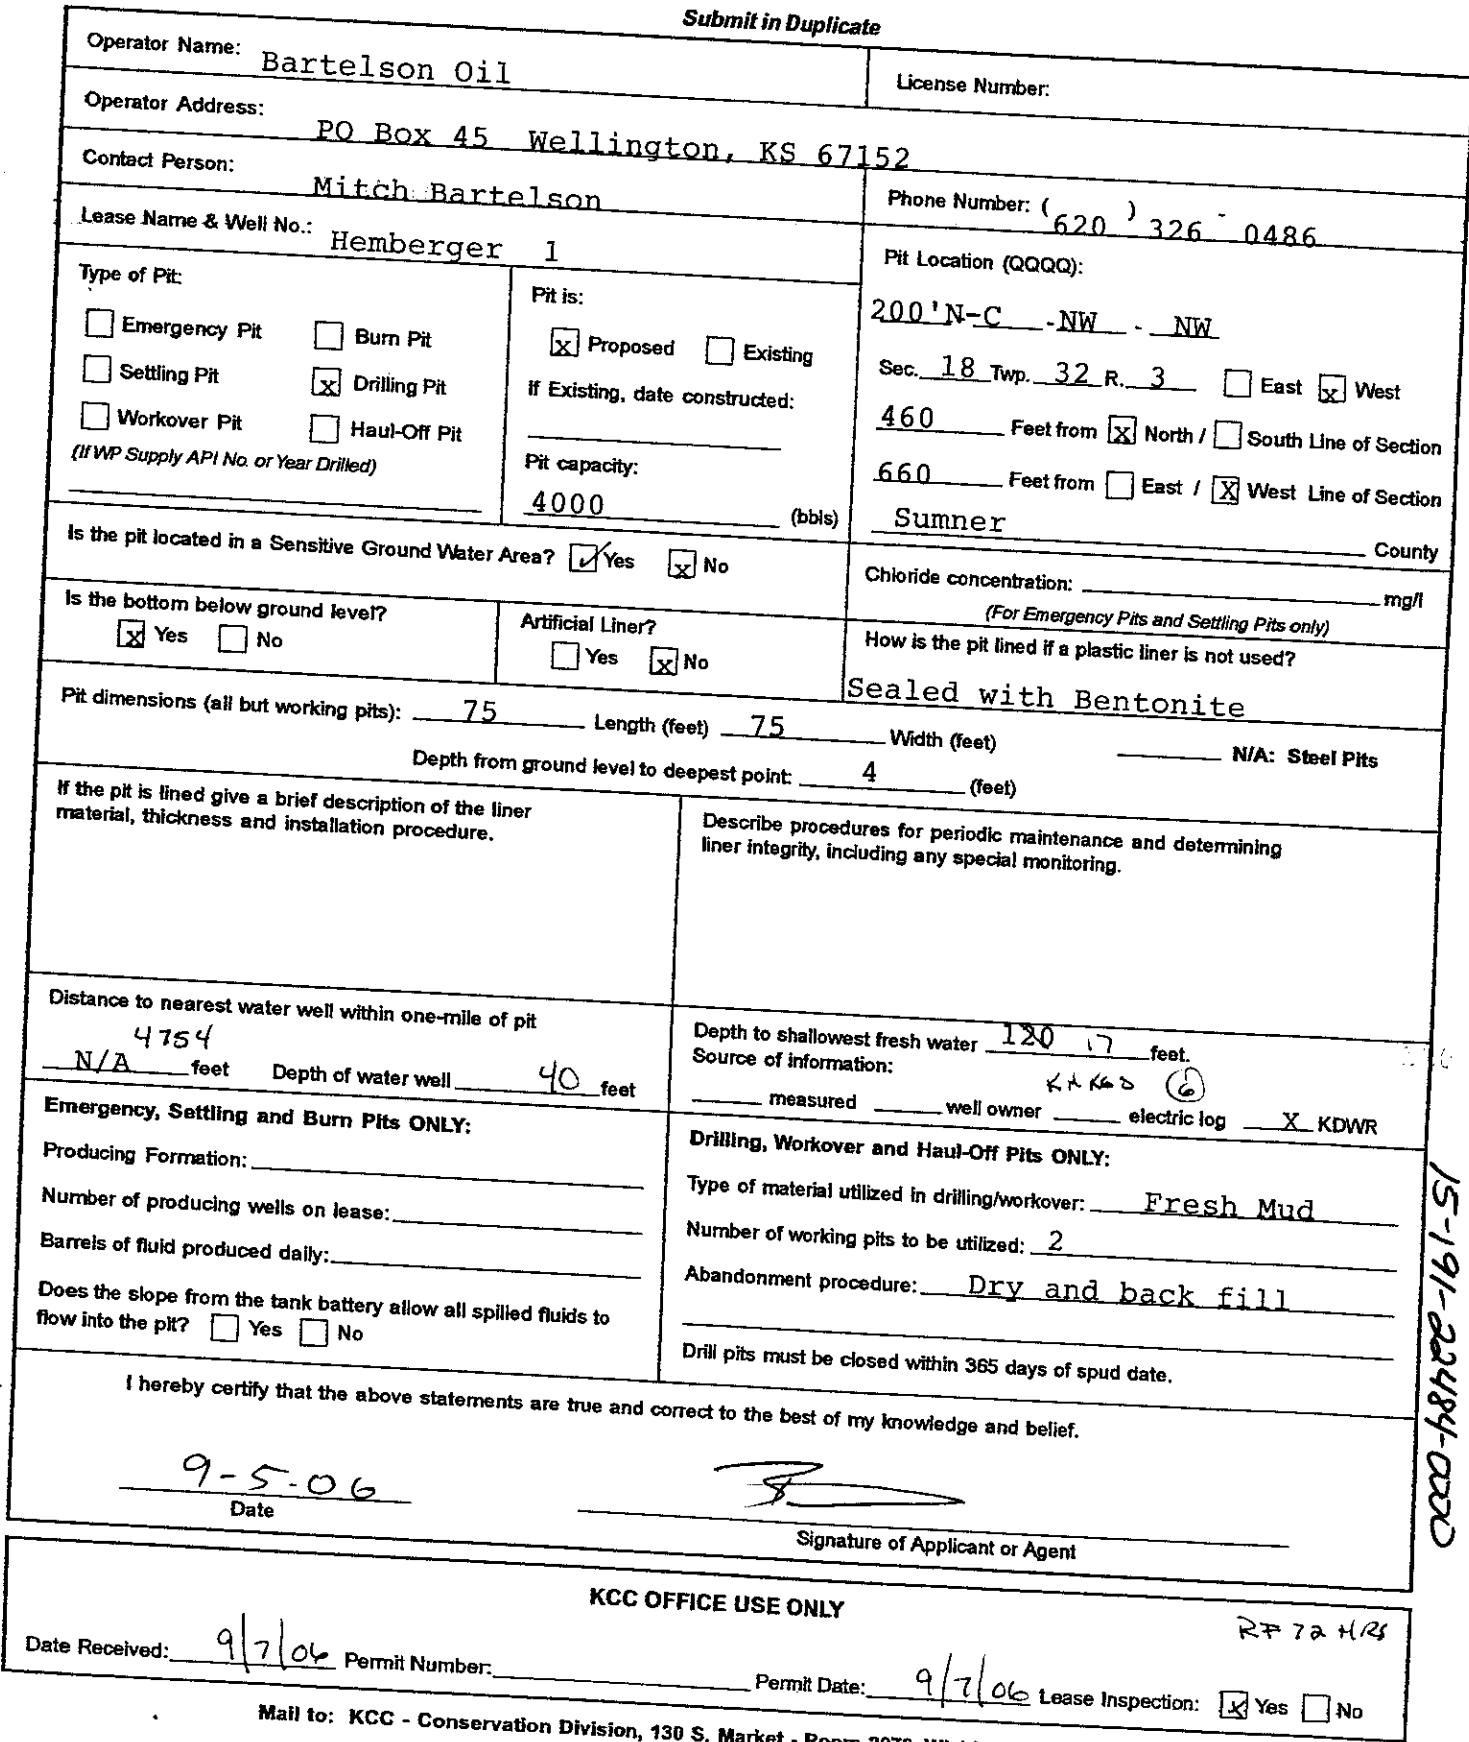 Submit in Duplicate
Operator Name: Bartelson Oil
License Number:
Operator Address: PO Box 45 Wellington, KS 67152
Contact Person: Mitch Bartelson
Phone Number: ( 620 ) 326 - 0486
Lease Name & Well No.: Hemberger 1
Pit Location (QQQQ):
200'N-C - NW - NW
Type of Pit:
Emergency Pit Burn Pit
Settling Pit x Drilling Pit
Workover Pit Haul-Off Pit
(If WP Supply API No. or Year Drilled)
Pit is:
x Proposed Existing
If Existing, date constructed:
Pit capacity:
4000 (bbls)
Sec. 18 Twp. 32 R. 3 East x West
460 Feet from X North / South Line of Section
660 Feet from East / X West Line of Section
Sumner County
Is the pit located in a Sensitive Ground Water Area? ✓ Yes x No
Chloride concentration: mg/l
(For Emergency Pits and Settling Pits only)
Is the bottom below ground level?
x Yes No
Artificial Liner?
Yes x No
How is the pit lined if a plastic liner is not used?
Sealed with Bentonite
Pit dimensions (all but working pits): 75 Length (feet) 75 Width (feet) N/A: Steel Pits
Depth from ground level to deepest point: 4 (feet)
If the pit is lined give a brief description of the liner
material, thickness and installation procedure.
Describe procedures for periodic maintenance and determining
liner integrity, including any special monitoring.
Distance to nearest water well within one-mile of pit
4754
N/A feet Depth of water well 40 feet
Depth to shallowest fresh water 120 17 feet.
Source of information:
6
measured well owner electric log X KDWR
Emergency, Settling and Burn Pits ONLY:
Producing Formation:
Number of producing wells on lease:
Barrels of fluid produced daily:
Does the slope from the tank battery allow all spilled fluids to
flow into the pit? Yes No
Drilling, Workover and Haul-Off Pits ONLY:
Type of material utilized in drilling/workover: Fresh Mud
Number of working pits to be utilized: 2
Abandonment procedure: Dry and back fill
Drill pits must be closed within 365 days of spud date.
I hereby certify that the above statements are true and correct to the best of my knowledge and belief.
9-5-06
Date
Signature of Applicant or Agent
15-191-22484-0000
KCC OFFICE USE ONLY
RF 72 HRS
Date Received: 9/7/06 Permit Number: Permit Date: 9/7/06 Lease Inspection: x Yes No
Mail to: KCC - Conservation Division, 130 S. Market - Room